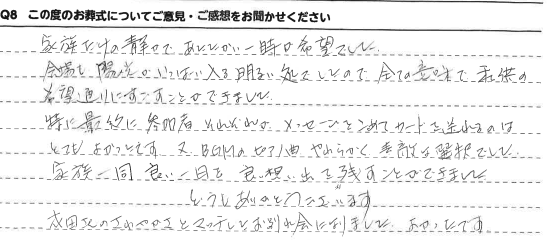 Q8 この度のお葬式についてご意見・ご感想をお聞かせください
家族だけの静かで、あたたかい一時が希望でした。
会場も陽光がいっぱい入る明るい処でしたので、全ての意味で、私供の
希望通りにすごすことができました。
特に最後に参加者それぞれがメッセージをこめてカードを送れるのは
とてもよかったです。又、BGMのピアノ曲やわらかく素敵な選択でした。
家族一同良い一日を良い想い出で残すことができました
どうもありがとうございます
さわやかさとマッチしたお別れ会になりました。よかったです